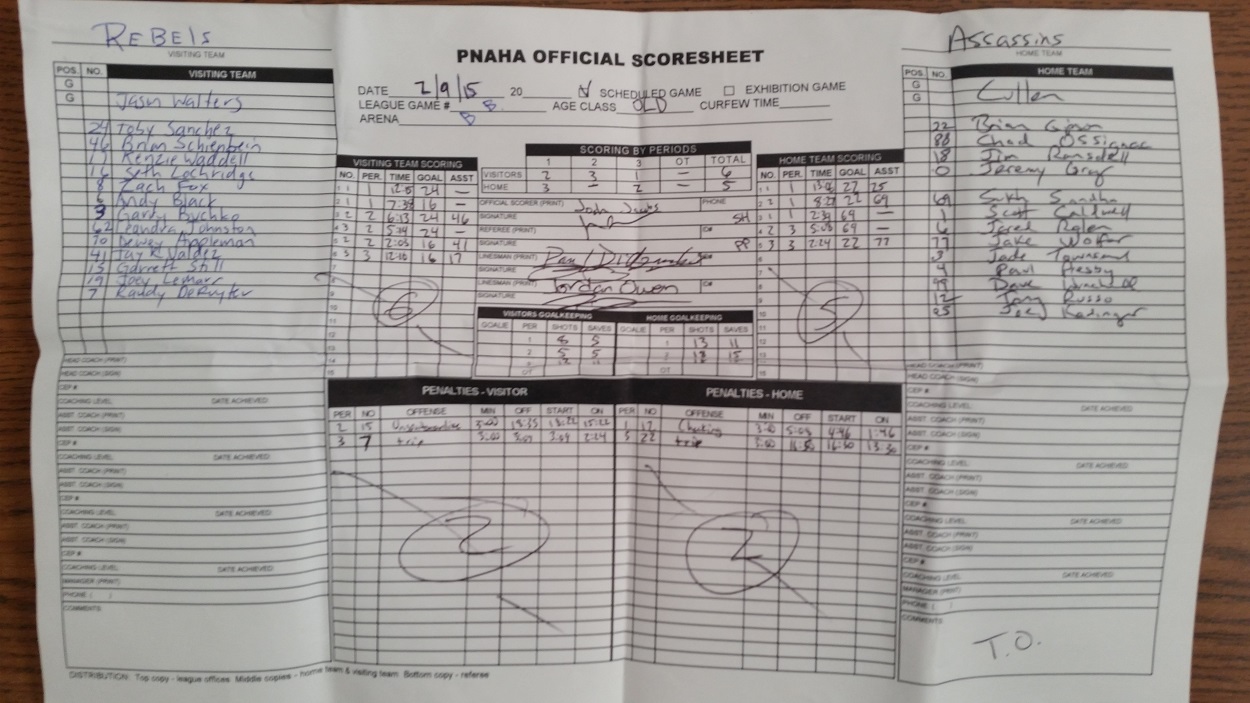 REBELS
VISITING TEAM
Assassins
HOME TEAM
PNAHA OFFICIAL SCORESHEET
DATE 2/9/15 20 SCHEDULED GAME EXHIBITION GAME
LEAGUE GAME # B AGE CLASS OLD CURFEW TIME
ARENA B
POS. NO. VISITING TEAM
G
G Jason Walters
24 Toby Sanchez
46 Brian Schienbein
17 Kenzie Waddell
16 Seth Lochridge
8 Zach Fox
6 Andy Black
9 Gary Buchko
62 Leandra Johnston
70 Dewey Appleman
41 Jay R Valdez
15 Garrett Still
19 Joey Lemarr
7 Randy DeRuyter
HEAD COACH (PRINT)
HEAD COACH (SIGN)
CEP #
COACHING LEVEL DATE ACHIEVED
ASST. COACH (PRINT)
ASST. COACH (SIGN)
CEP #
COACHING LEVEL DATE ACHIEVED
ASST. COACH (PRINT)
ASST. COACH (SIGN)
CEP #
COACHING LEVEL DATE ACHIEVED
ASST. COACH (PRINT)
ASST. COACH (SIGN)
CEP #
COACHING LEVEL DATE ACHIEVED
MANAGER (PRINT)
PHONE ( )
COMMENTS
VISITING TEAM SCORING
NO. PER. TIME GOAL ASST
1 1 24 —
2 1 7:38 16 —
3 2 6:13 24 46
4 2 5:34 24 —
5 2 2:03 16 41
6 3 12:10 16 17
6
SCORING BY PERIODS
1 2 3 OT TOTAL
VISITORS 2 3 1 — 6
HOME 3 — 2 — 5
OFFICIAL SCORER (PRINT) PHONE
SIGNATURE SH
REFEREE (PRINT) C#
SIGNATURE PP
LINESMAN (PRINT)
SIGNATURE
LINESMAN (PRINT) Jordan Owen C#
SIGNATURE
VISITORS GOALKEEPING HOME GOALKEEPING
GOALIE PER SHOTS SAVES GOALIE PER SHOTS SAVES
1 8 5 1 13 11
2 5 5 2 18 15
OT OT
HOME TEAM SCORING
NO. PER. TIME GOAL ASST
1 1 22 25
2 1 8:27 22 69
3 1 2:39 69 —
4 3 5:08 69 —
5 3 2:24 22 77
5
POS. NO. HOME TEAM
G
G Cullen
22 Brian
88 Chad Ossignac
18 Jim Ramsdell
0 Jeremy Gray
69 Sukh Sandhu
1 Scott Caldwell
6 Jared
77 Jake
3 Jade Townsend
4 Paul
99 Dave
12 Tony Russo
25 Joey
HEAD COACH (PRINT)
HEAD COACH (SIGN)
CEP #
COACHING LEVEL DATE ACHIEVED
ASST. COACH (PRINT)
ASST. COACH (SIGN)
CEP #
COACHING LEVEL DATE ACHIEVED
ASST. COACH (PRINT)
ASST. COACH (SIGN)
CEP #
COACHING LEVEL DATE ACHIEVED
ASST. COACH (PRINT)
ASST. COACH (SIGN)
CEP #
COACHING LEVEL DATE ACHIEVED
MANAGER (PRINT)
PHONE ( )
COMMENTS
T.O.
PENALTIES - VISITOR
PER NO OFFENSE MIN OFF START ON
2 15 3:00 18:35 18:22 15:22
3 7 trip 3:00 2:24
2
PENALTIES - HOME
PER NO OFFENSE MIN OFF START ON
1 12 Checking 3:00 5:08 4:46 1:46
3 22 trip 3:00 16:50 16:30 13:30
2
DISTRIBUTION: Top copy - league offices Middle copies - home team & visiting team Bottom copy - referee